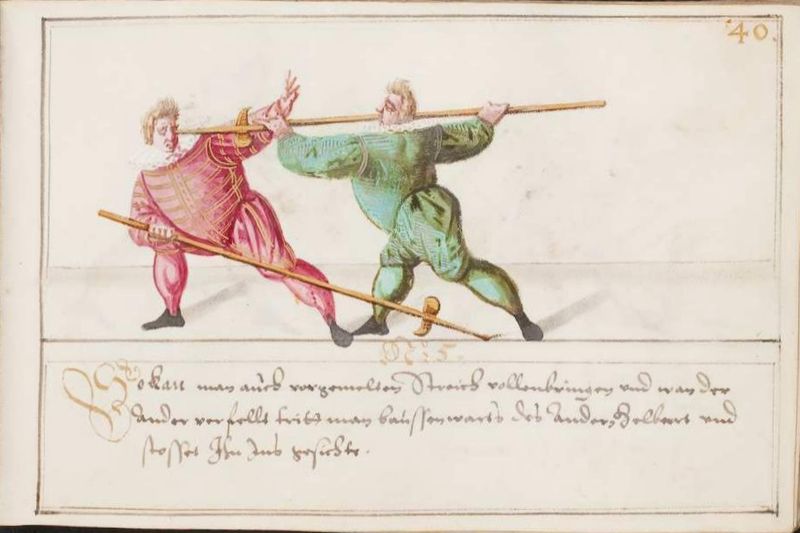 40.
Nº 5.
So kan man auch vorgemelten Streich vollenbringen und wan der
Ander verfellt tritt man baussenwarts des Andern Helbart und
stosset Ihn Ins gesichte.